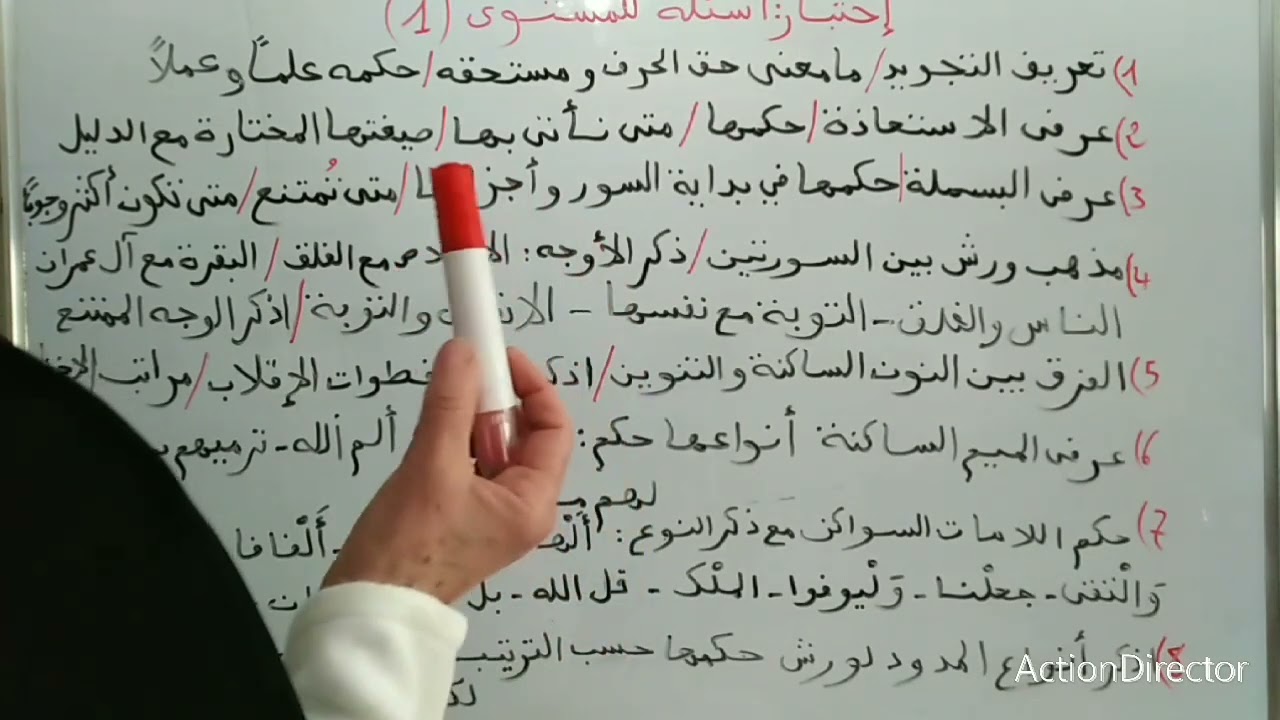 إختبار: أسئلة للمستوى (1)
1) تعريف التجويد/ ما معنى حق الحرف ومستحقه/ حكمه علمًا وعملاً
2) عرفي الاستعاذة/ حكمها/ متى نأتي بها/ صيغتها المختارة مع الدليل
3) عرفي البسملة/ حكمها في بداية السور و/ متى تُمتنع/ متى تكون أكثر وجوبًا
4) مذهب ورش بين السورتين/ ذكر الأوجه: مع الفلق/ البقرة مع آل عمران
الناس والفلق - التوبة مع نفسها - والتوبة/ اذكر الوجه الممتنع
5) الفرق بين النون الساكنة والتنوين/ خطوات الإقلاب/ مراتب
6) عرفي الميم الساكنة أنواعها حكم: ألم الله - ترميهم
لهم
7) حكم اللامات السواكن مع ذكر النوع: - أَلْفافا
وَالْتقى - جعلْنا - وَلْيوفوا - الملْك - قل الله - بل
8) أنواع المدود لورش حكمها حسب الترتيب
ActionDirector